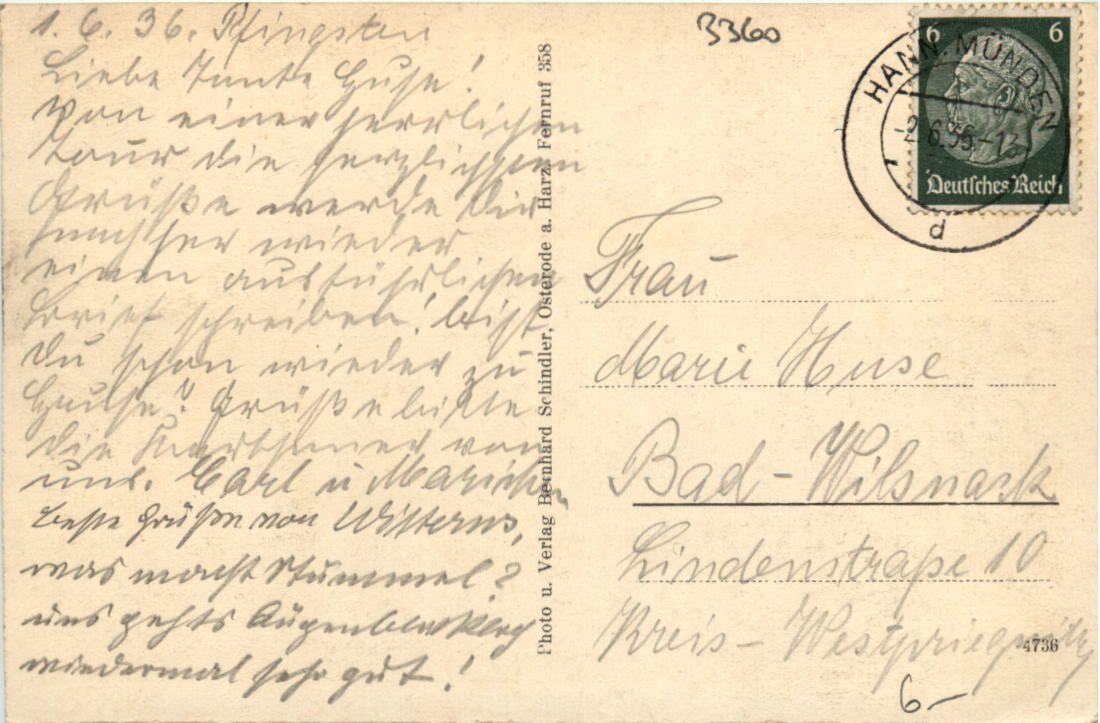 1.6.36. Pfingsten
Liebe Tante Huse!
Von einer herrlichen
Tour die herzlichsten
Grüße werde Dir
nachher wieder
einen ausführlichen
Brief schreiben! bist
Du schon wieder zu
Hause? Grüße bitte
die von
uns. Carl u Mariechen
beste Grüße von
was macht Stummel?
uns gehts Augenblicklich
wiedermal sehr gut!
Photo u. Verlag Bernhard Schindler, Osterode a. Harz. Fernruf 358
3360
HANN. MÜNDEN
-2.6.36.-13
d
6 6
Deutsches Reich
Frau
Marie Huse
Bad-Wilsnack
Lindenstraße 10
Kreis-Westpriegnitz
4736
6-